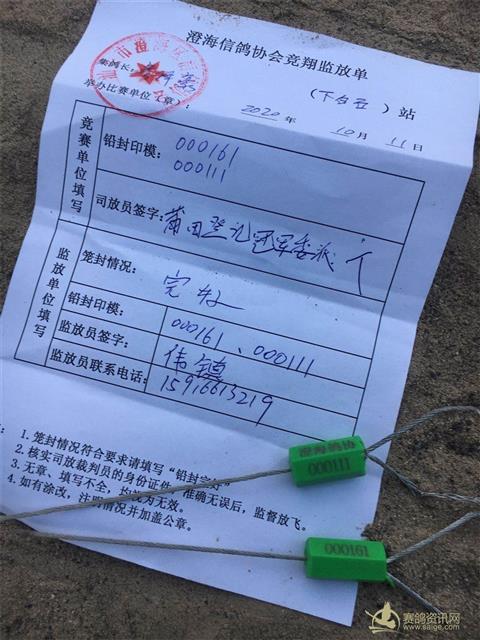 澄海信鸽协会竞翔监放单
集鸽长:
(下白石)站
举办比赛单位(章):
2020 年 10 月 11 日
竞赛单位填写
铅封印模: 000161
000111
司放员签字: 莆田
冠军委派
监放单位填写
笼封情况: 完好
铅封印模: 000161、000111
监放员签字: 伟镇
监放员联系电话: 15916613219
1. 笼封情况符合要求请填写“铅封完
2. 核实司放裁判员的身份证件,准确无误后,监督放飞。
3. 无章、填写不全、视为无效。
4. 如有涂改,注明情况并加盖公章。
澄海鸽协
000111
000161
赛鸽资讯网
www.saige.com